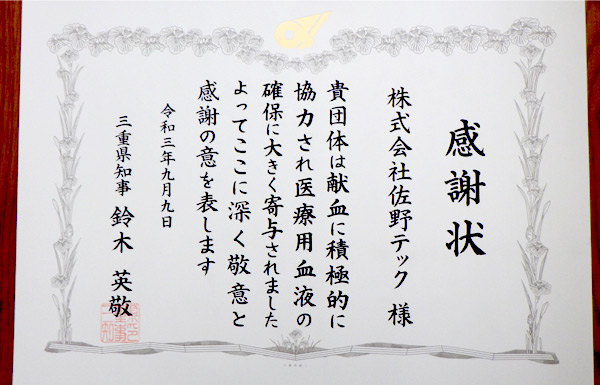 感謝状
株式会社佐野テック 様
貴団体は献血に積極的に
協力され医療用血液の
確保に大きく寄与されました
よってここに深く敬意と
感謝の意を表します
令和三年九月九日
三重県知事 鈴木 英敬